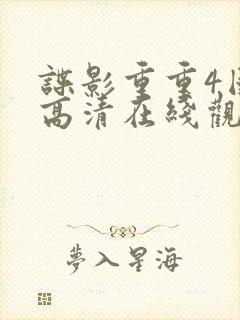 諜影重重4
高清在綫觀
夢入星海